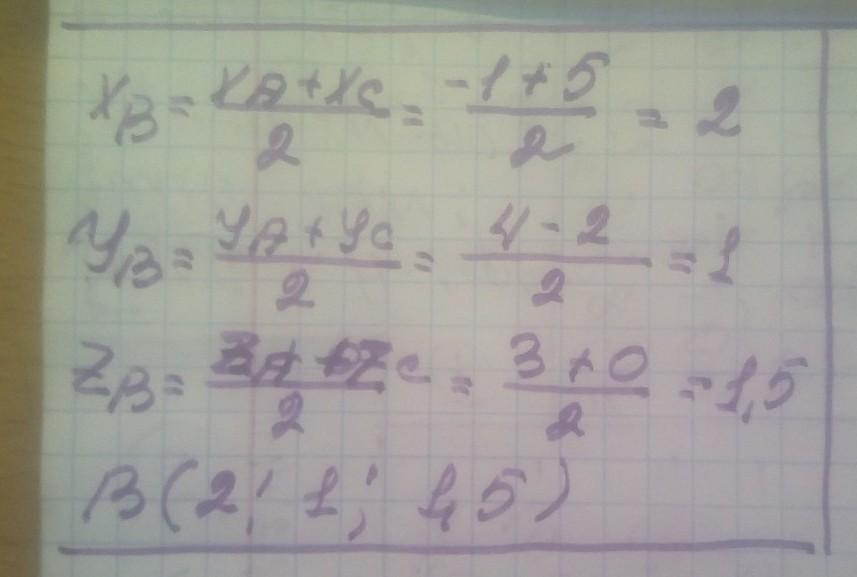 x_B = (x_A + x_C)/2 = (-1 + 5)/2 = 2
y_B = (y_A + y_C)/2 = (4 - 2)/2 = 1
z_B = (z_A + z_C)/2 = (3 + 0)/2 = 1,5
B (2; 1; 1,5)